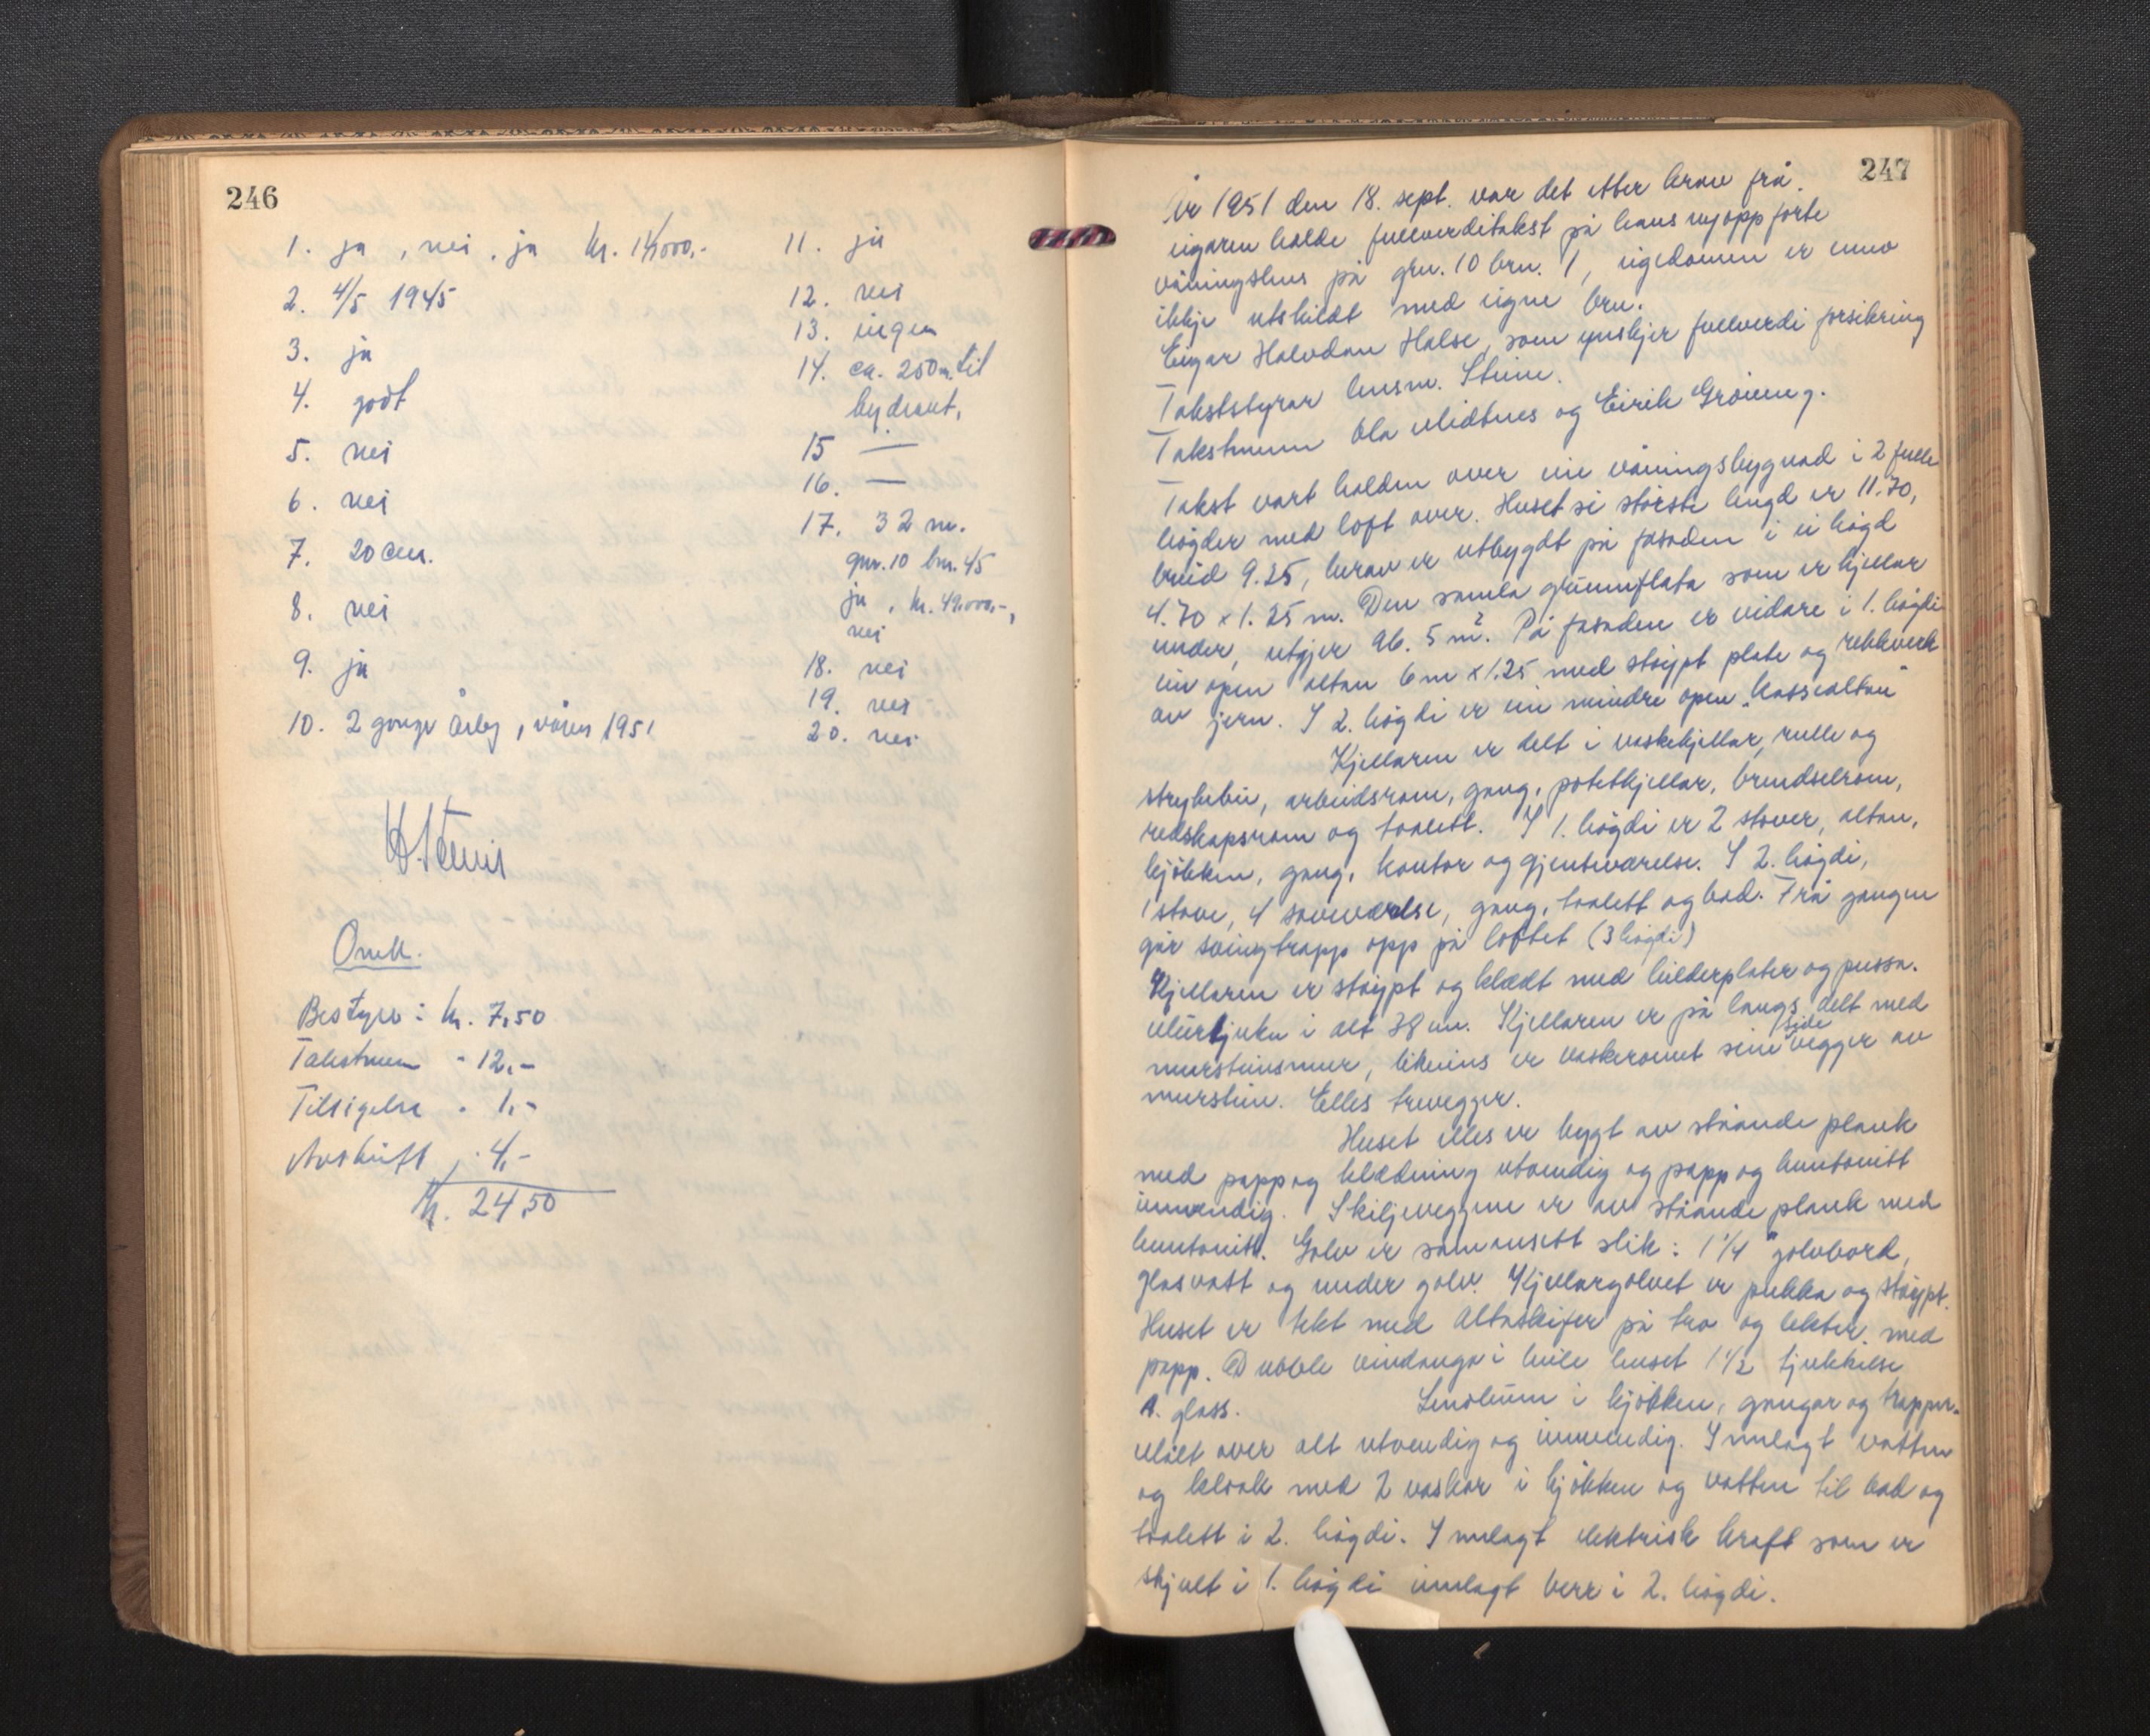 246
1. ja, nei, ja kr. 14000,-
2. 4/5 1945
3. ja
4. godt
5. nei
6. nei
7. 20 cm.
8. nei
9. ja
10. 2 gonge årleg, våren 1951
11. ja
12. nei
13. ingen
14. ca. 250 m. til
hydrant.
15 —
16. —
17. 32 m.
gnr. 10 bnr. 45
ja, kr. 49.000,-,
nei
18. nei
19. nei
20. nei
Omk.
Bestyrer: kr. 7,50
Takstmenn - 12,-
Tilsigelse - 1,-
Avskrift - 4,-
Kr. 24,50
247
År 1951 den 18. sept. var det etter krav frå
eigaren halde fullverditakst på hans nyoppførte
våningshus på gnr. 10 bnr. 1, eigedomen er enno
ikkje utskildt med eigne bnr.
Eigar Halvdan Halse, som ynskjer fullverdi forsikring
Takststyrar lensm. Steine.
Takstmenn Ola Midtnes og Eirik Grøneng.
Takst vart halden over ein våningsbygnad i 2 fulle
høgder med loft over. Huset si største lengd er 11.70,
breid 9.25, herav er utbygdt på fasaden i ei høgd
4.70 x 1.25 m. Den samla grunnflata som er kjellar
under, utgjer 96.5 m². På fasaden er vidare i 1. høgdi
ein open altan 6 m x 1.25 med støypt plate og rekkverk
av jern. I 2. høgdi er ein mindre open "kassealtan"
Kjellaren er delt i vaskekjellar, rulle og
strykebu, arbeidsrom, gang, potetkjellar, brendselrom,
redskapsrom og toalett. I 1. høgdi er 2 stover, altan,
kjøkken, gang, kontor og gjenteværelse. I 2. høgdi,
1 stove, 4 soveværelse, gang, toalett og bad. Frå gangen
går svingtrapp opp på loftet (3 høgdi)
Kjellaren er støypt og klædt med bilderplater og pussa.
Murtjukn i alt 38 cm. Kjellaren er på langs delt med
murstinsmur, likeins er vaskeromet sine side vegger av
murstein. Elles trevegger.
Huset elles er bygt av ståande plank
med papp og klædning utvendig og papp og huntonitt
innvendig. Skiljeveggene er av ståande plank med
huntonitt. Golv er samansett slik: 1 1/4" golvbord,
glasvatt og under golv. Kjellargolvet er pukka og støypt.
Huset er tekt med Altaskifer på tro og lekter med
papp. Dubble vindauga i heile huset 1 1/2 tjukkilse
A. glass. Linoleum i kjøkken, gangar og trapper.
Målt over alt utvendig og innvendig. Innlagt vatten
og kloak med 2 vaskar i kjøkken og vatten til bad og
toalett i 2. høgdi. Innlagt elektrisk kraft som er
skjult i 1. høgdi innlagt berr i 2. høgdi.